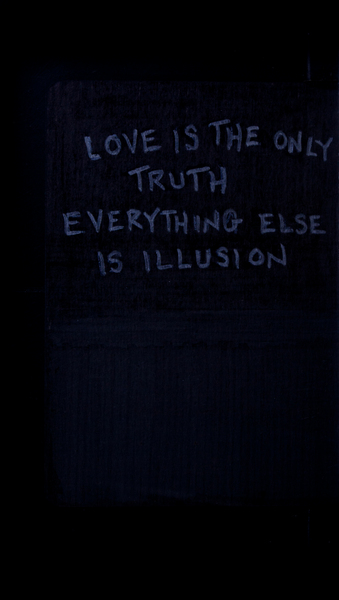 LOVE IS THE ONLY
TRUTH
EVERYTHING ELSE
IS ILLUSION